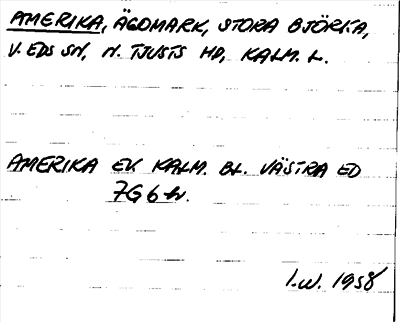 AMERIKA, ÄGOMARK, STORA BJÖRKA,
V. EDS SN, N. TJUSTS HD, KALM. L.
AMERIKA EK KALM. BL. VÄSTRA ED
7G6h.
I.W. 1958